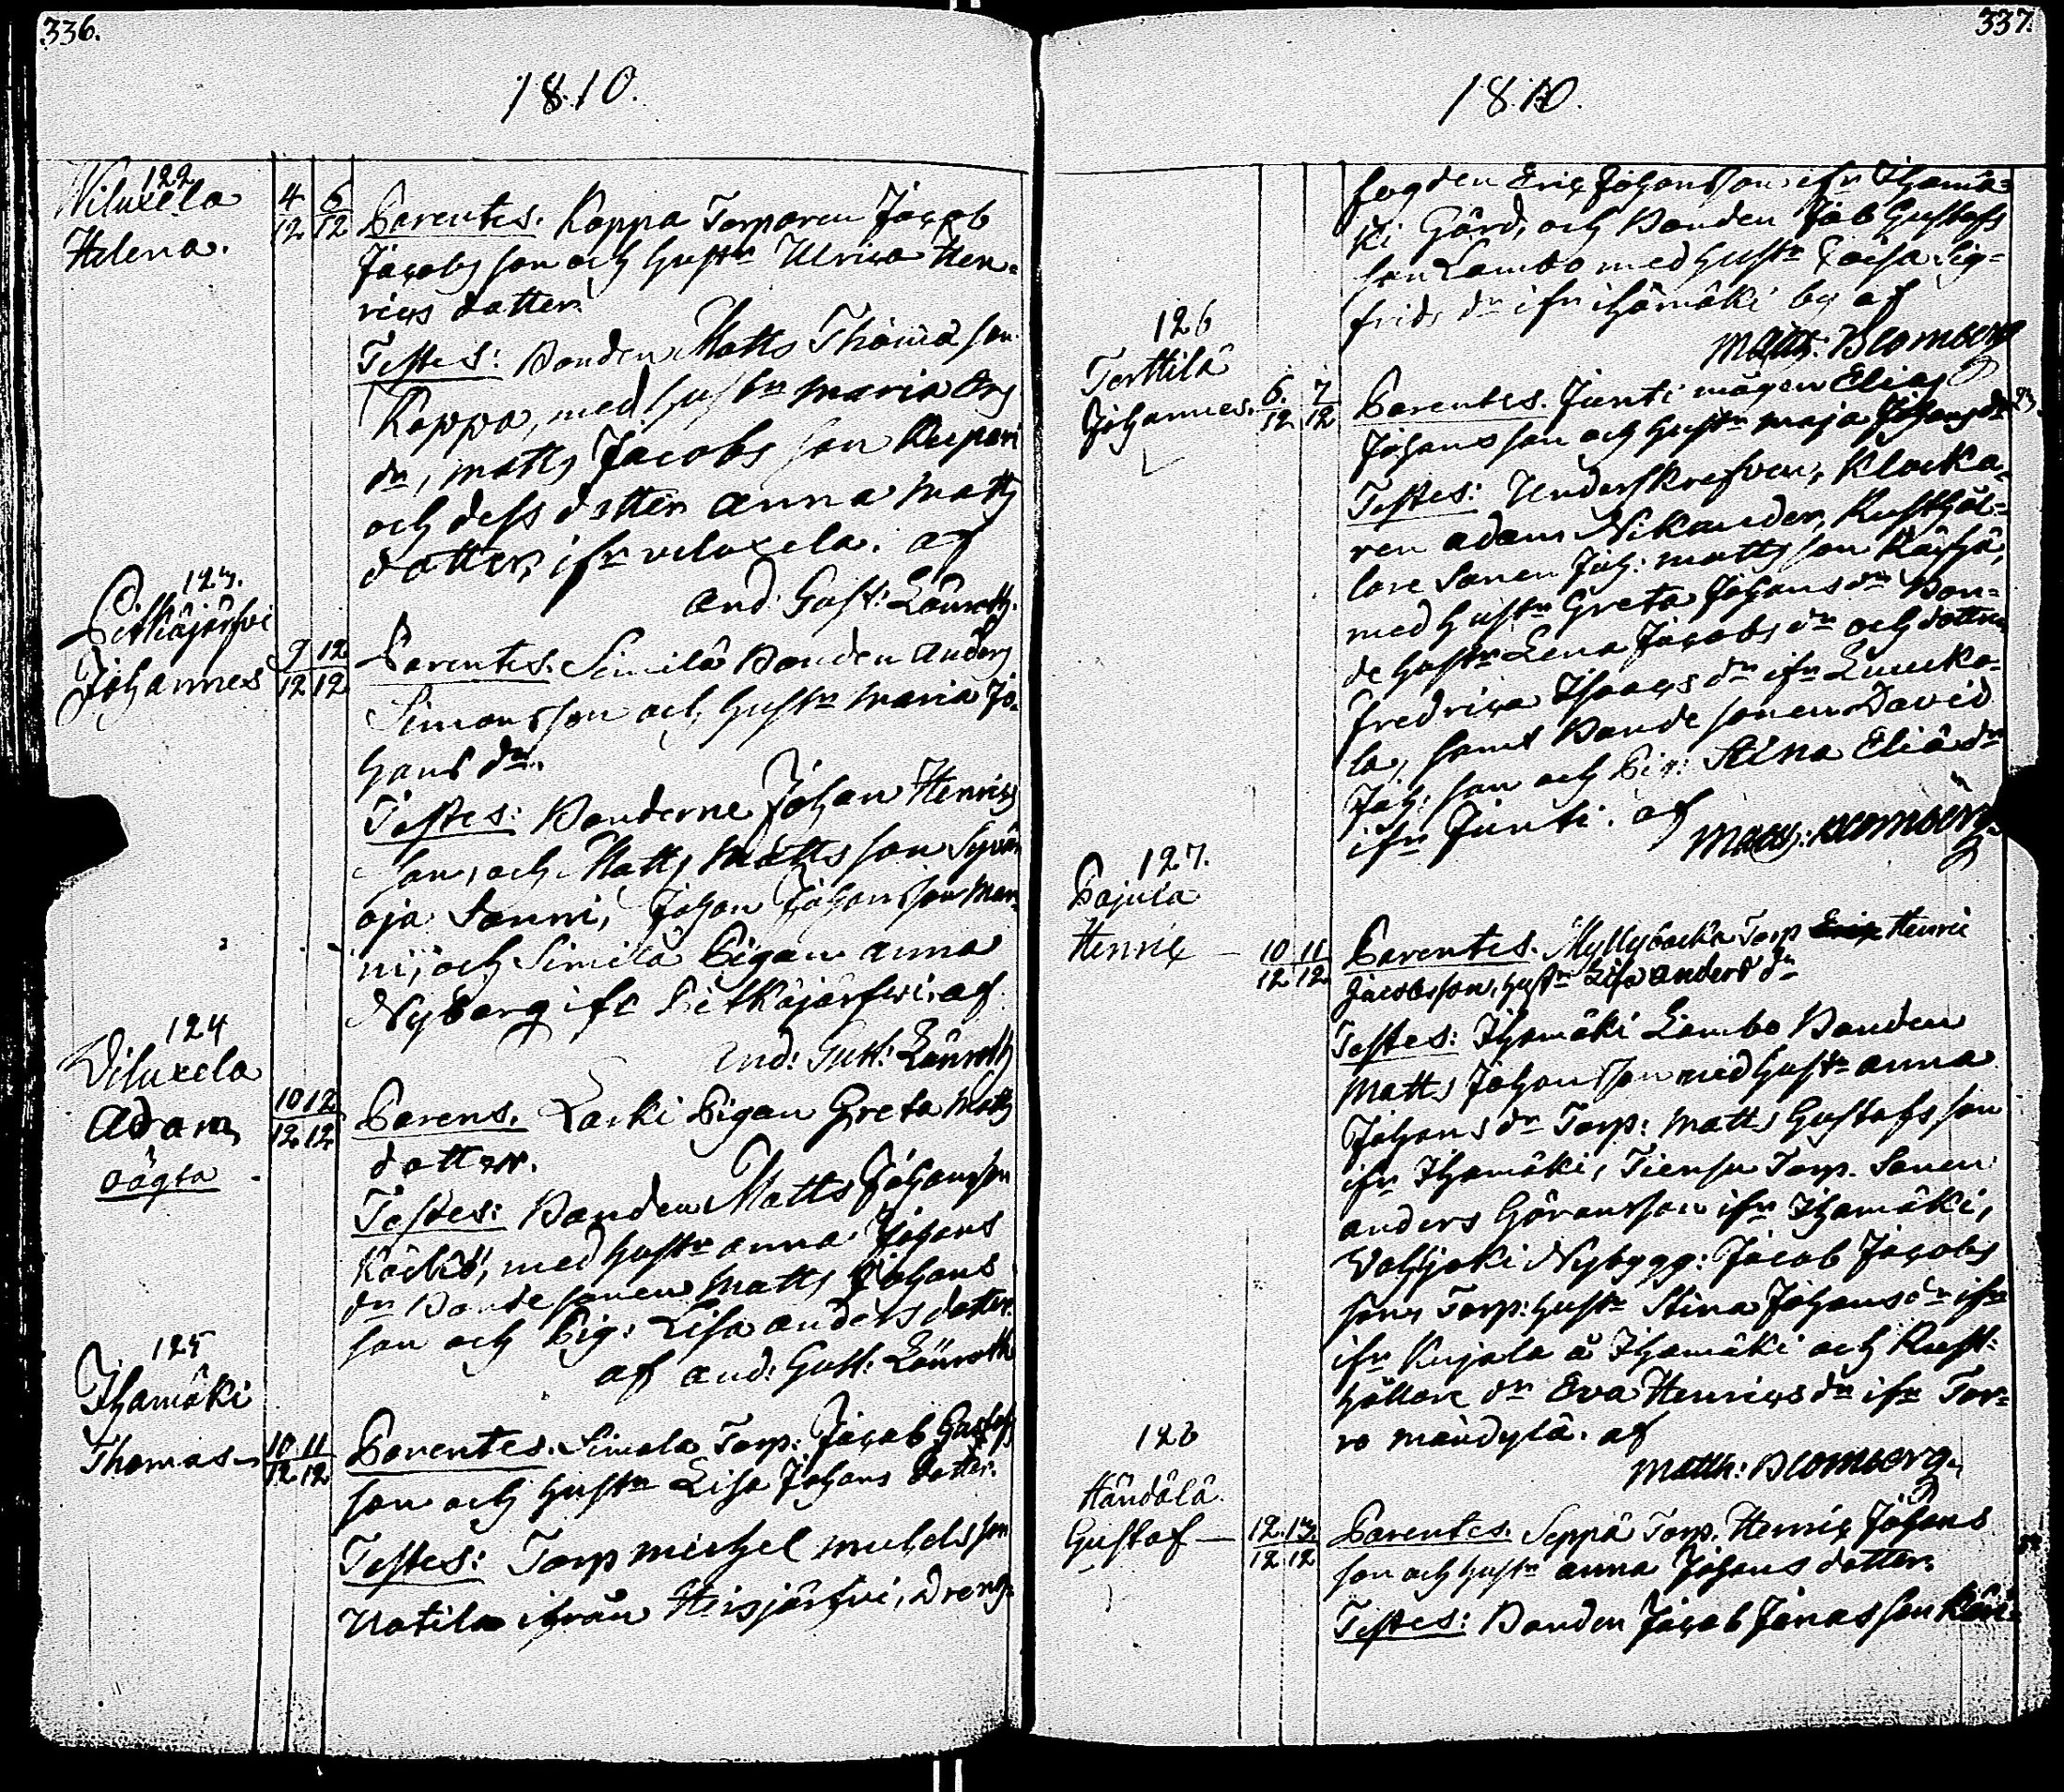 336.
1810.
122
Wiluxela
Helena.
4 6
12 12
Parentes. Koppa Torparen Jacob
Jacobs son och hustr Ulrica Hen-
rics dotter.
Testes: Bonden Matts Thomas son
Koppa, med hustr Maria Ers
dr, Matts Jacobs son Kupari
och dess dotter Anna Matts
dotter, ifr Viluxela. af
And: Gust: Lönroth.
123.
Pitkäjärfvi
Johannes
9 12
12 12
Parentes. Similä Bonden Anders
Simonsson och hustr Maria Jo-
hans dr.
Testes: Bönderne Johan Henrics
son, och Matts Matts son Syvän
oja Sonni, Johan Johansson Man-
ni, och Similä Pigan Anna
Nyberg ifr Pitkäjärfvi. af
And: Gust: Lönroth
124
Viluxela
Adam
oägta
10 12
12 12
Parens. Laski Pigan Greta Matts
dotter.
Testes: Bonden Matts Johansson
med hustr Anna Johans
dr Bonde sonen Matts Johans
son och Pig: Lisa Anders dotter.
af And: Gust: Lönroth
125
Ihamäki
Thomas
10 11
12 12
Parentes. Simola Torp: Jacob Gustafs
son och hustr Lisa Johans dotter.
Testes: Torp Michel Michels son
Uotila ifrån Hirsjärfvi, Dreng-
337.
1810.
fogden Eric Johansson ifr Ihamä-
ki Gård, och Bonden Jab Gustafs
son Lambo med hustr Caisa Sig-
frids dr ifr ihämäki by af
Matth: Blomberg
126
Torttila
Johannes.
6. 7
12 12
Parentes. Junti mågen Elias
Johans son och hustr Maja Johans dr
Testes: Underskrefven, Klocka-
ren Adam Nikander, Rusthål-
lare Sonen Joh: Matts son
med hustr Greta Johans dr Bon-
de hustr Lena Jacobs dr och dottren
Fredrica Isaacs dr ifr
la, samt Bonde sonen David
Joh: son och Pig: Stina Eliä dr
ifr Junti. af
Matth: Blomberg
127.
Pajula
Henric
10 11
12 12
Parentes. Myllybacka Torp Eric Henric
Jacobsson, hustr Lisa Anders dr
Testes: Ihamäki Lambo Bonden
Matts Johansson med hustr Anna
Johans dr Torp: Matts Gustafs son
ifr Ihamäki, Tiensu Torp. Sonen
Anders Göransson ifr Ihamäki,
Valsjoki Nybygg: Jacob Jacobs
son, Torp: hustr Stina Johans dr ifr
ifr Kujala å Ihamäki och Rust-
hållare dr Eva Henrics dr ifr Tor-
ro Mändylä. af
Matth: Blomberg.
128
Händälä
Gustaf
12. 13.
12 12
Parentes. Seppä Torp. Henric Johans
son och hustr Anna Johans dotter.
Testes: Bonden Jacob Jonas son